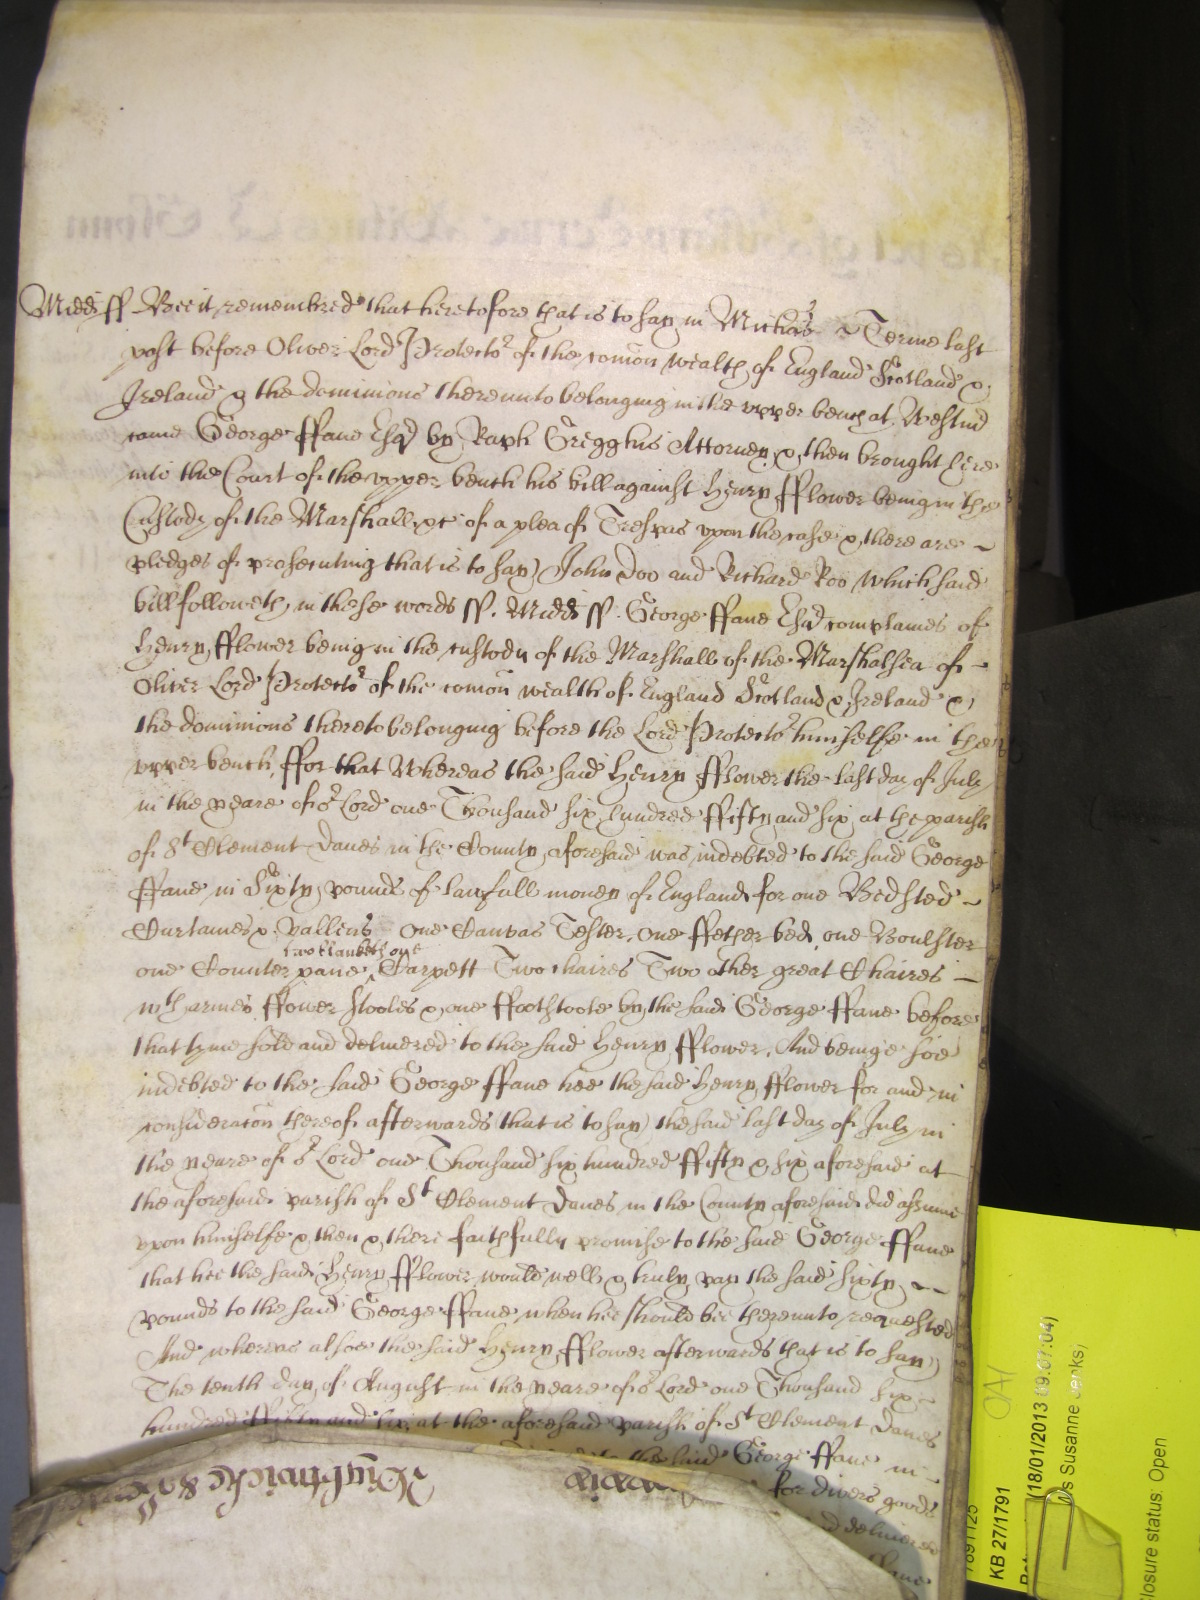 Midds ss Bee it remembred that heretofore that is to say in Michas Terme last
past before Oliver Lord Protector of the comon wealth of England Scotland &
Ireland & the dominions thereunto belonging in the upper bench at Westmr
came George ffane Esqr by Raph Gregg his Attorney & then brought here
into the Court of the upper bench his bill against Henry fflower being in the
Custody of the Marshall &c of a plea of Trespas upon the case & there are
pledges of prosecuting that is to say John Doo and Richard Roo Which said
bill followeth in these words ss. Midds ss. George ffane Esqr complaines of
Henry fflower being in the custody of the Marshall of the Marshalsea of
Oliver Lord Protector of the comon wealth of England Scotland & Ireland &
the dominions thereto belonging before the Lord Protector himselfe in the
upper bench, ffor that Whereas the said Henry fflower the last day of July
in the yeare of or Lord one Thousand six hundred ffifty and six at the parish
of St Clement Danes in the County aforesaid was indebted to the said George
ffane in Sixty pounds of lawfull money of England for one Bedsted
Curtaines & Vallens one Canvas Tester, one ffether bed, one Boulster
two blanketts one
one Counter pane, Carpett Two chaires Two other great Chaires
wth armes ffower stooles & one ffootstoole by the said George ffane before
that tyme sold and delivered to the said Henry fflower, And beinge soe
indebted to the said George ffane hee the said Henry fflower for and in
consideracon thereof afterwards (that is to say) the said last day of July in
the yeare of or Lord one Thousand six hundred ffifty & six aforesaid at
the aforesaid parish of St Clement Danes in the County aforesaid did assume
upon himselfe & then & there faithfully promise to the said George ffane
that hee the said Henry fflower would well & truly pay the said sixty
pounds to the said George ffane when hee should bee thereunto requested
And whereas alsoe the said Henry fflower afterwards that is to say)
The tenth day of August in the yeare of or Lord one Thousand six
hundred ffifty and six at the aforesaid parish of St Clement Danes
to the said George ffane in
for divers goods
delivered
ffane
KB 27/1791
(18/01/2013 09:07:04)
Susanne
closure status: Open